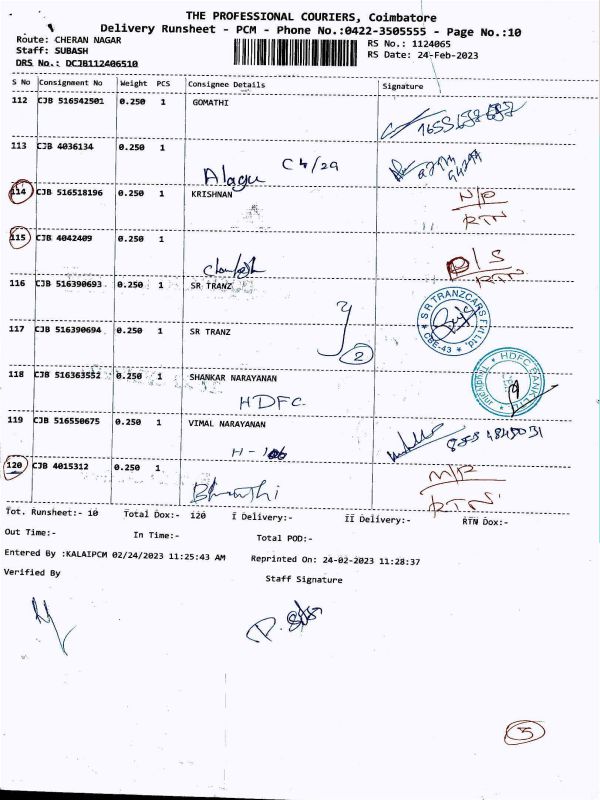 THE PROFESSIONAL COURIERS, Coimbatore
Delivery Runsheet - PCM - Phone No.:0422-3505555 - Page No.:10
Route: CHERAN NAGAR
RS No.: 1124065
Staff: SUBASH
RS Date: 24-Feb-2023
DRS No.: DCJB112406510
S No Consignment No Weight PCS Consignee Details Signature
112 CJB 516542501 0.250 1 GOMATHI
113 CJB 4036134 0.250 1
Alagu C4/29
114 CJB 516518196 0.250 1 KRISHNAN N/P
RTN
115 CJB 4042409 0.250 1
D/S
RTN
116 CJB 516390693 0.250 1 SR TRANZ
S R TRANZCARS Pvt Ltd. CBE-43
117 CJB 516390694 0.250 1 SR TRANZ
2
118 CJB 516363552 0.250 1 SHANKAR NARAYANAN
HDFC
HDFC BANK
119 CJB 516550675 0.250 1 VIMAL NARAYANAN
120 CJB 4015312 0.250 1
RTN
Tot. Runsheet:- 10 Total Dox:- 120 I Delivery:- II Delivery:- RTN Dox:-
Out Time:- In Time:- Total POD:-
Entered By :KALAIPCM 02/24/2023 11:25:43 AM Reprinted On: 24-02-2023 11:28:37
Verified By
Staff Signature